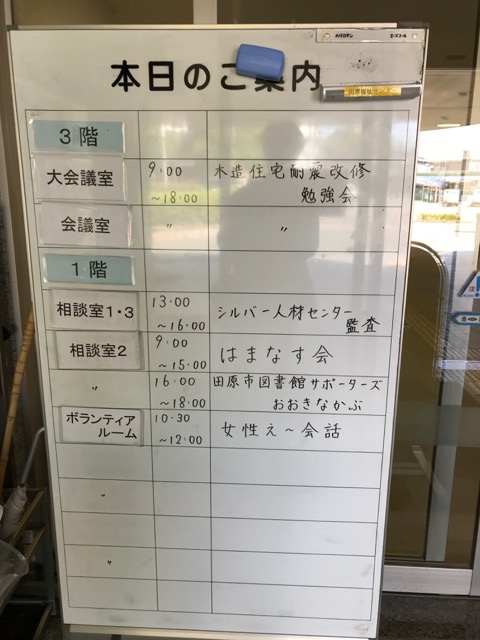 本日のご案内
3階
大会議室 9:00 木造住宅耐震改修
~18:00 勉強会
会議室 〃 〃
1階
相談室1・3 13:00 シルバー人材センター
~16:00 監査
相談室2 9:00 はまなす会
~15:00
〃 16:00 田原市図書館サポーターズ
~18:00 おおきなかぶ
ボランティア 10:30 女性え~会話
ルーム ~12:00
〃
〃